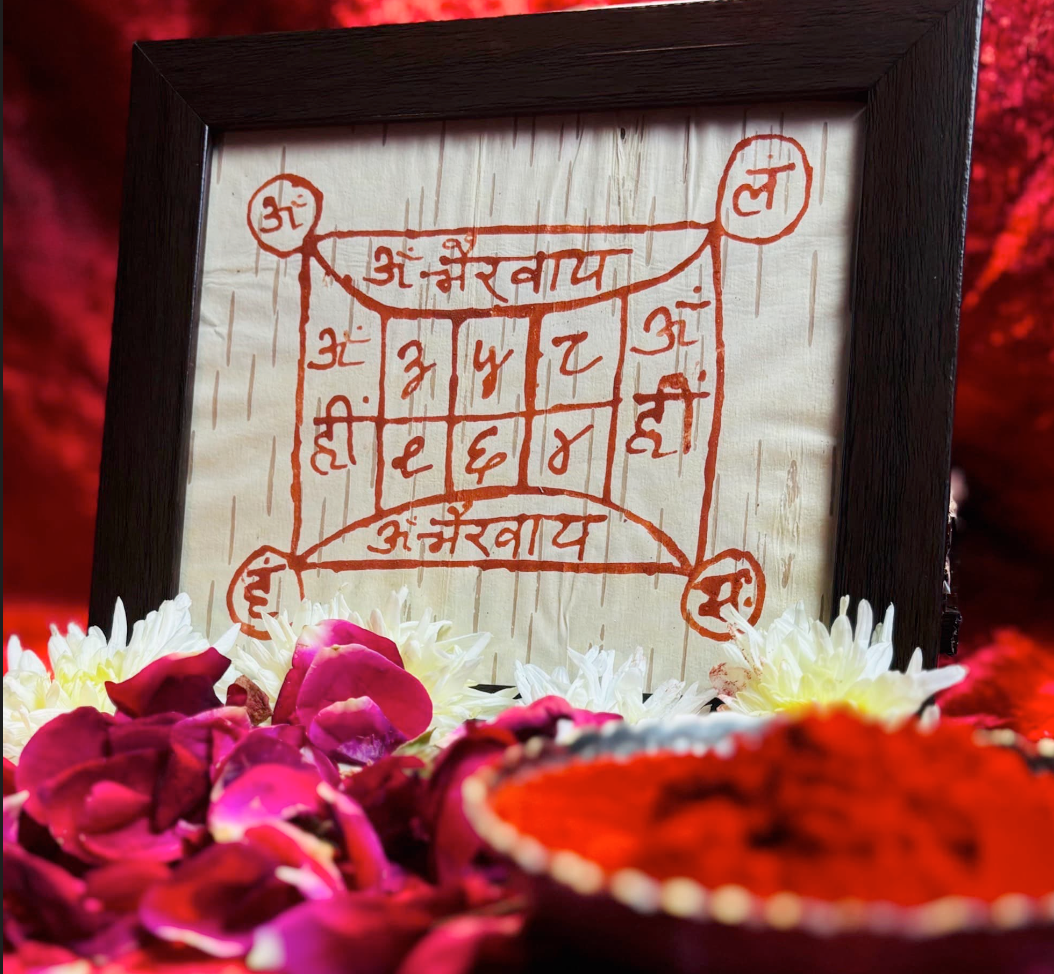 अं लं
अं भैरवाय
अं ३ ५ ८ अं
ह्रीं ९ ६ ४ ह्रीं
अं भैरवाय
हं